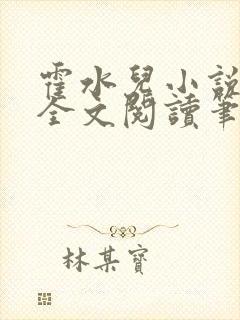 霍水兒小說
全文閱讀筆
林某寶